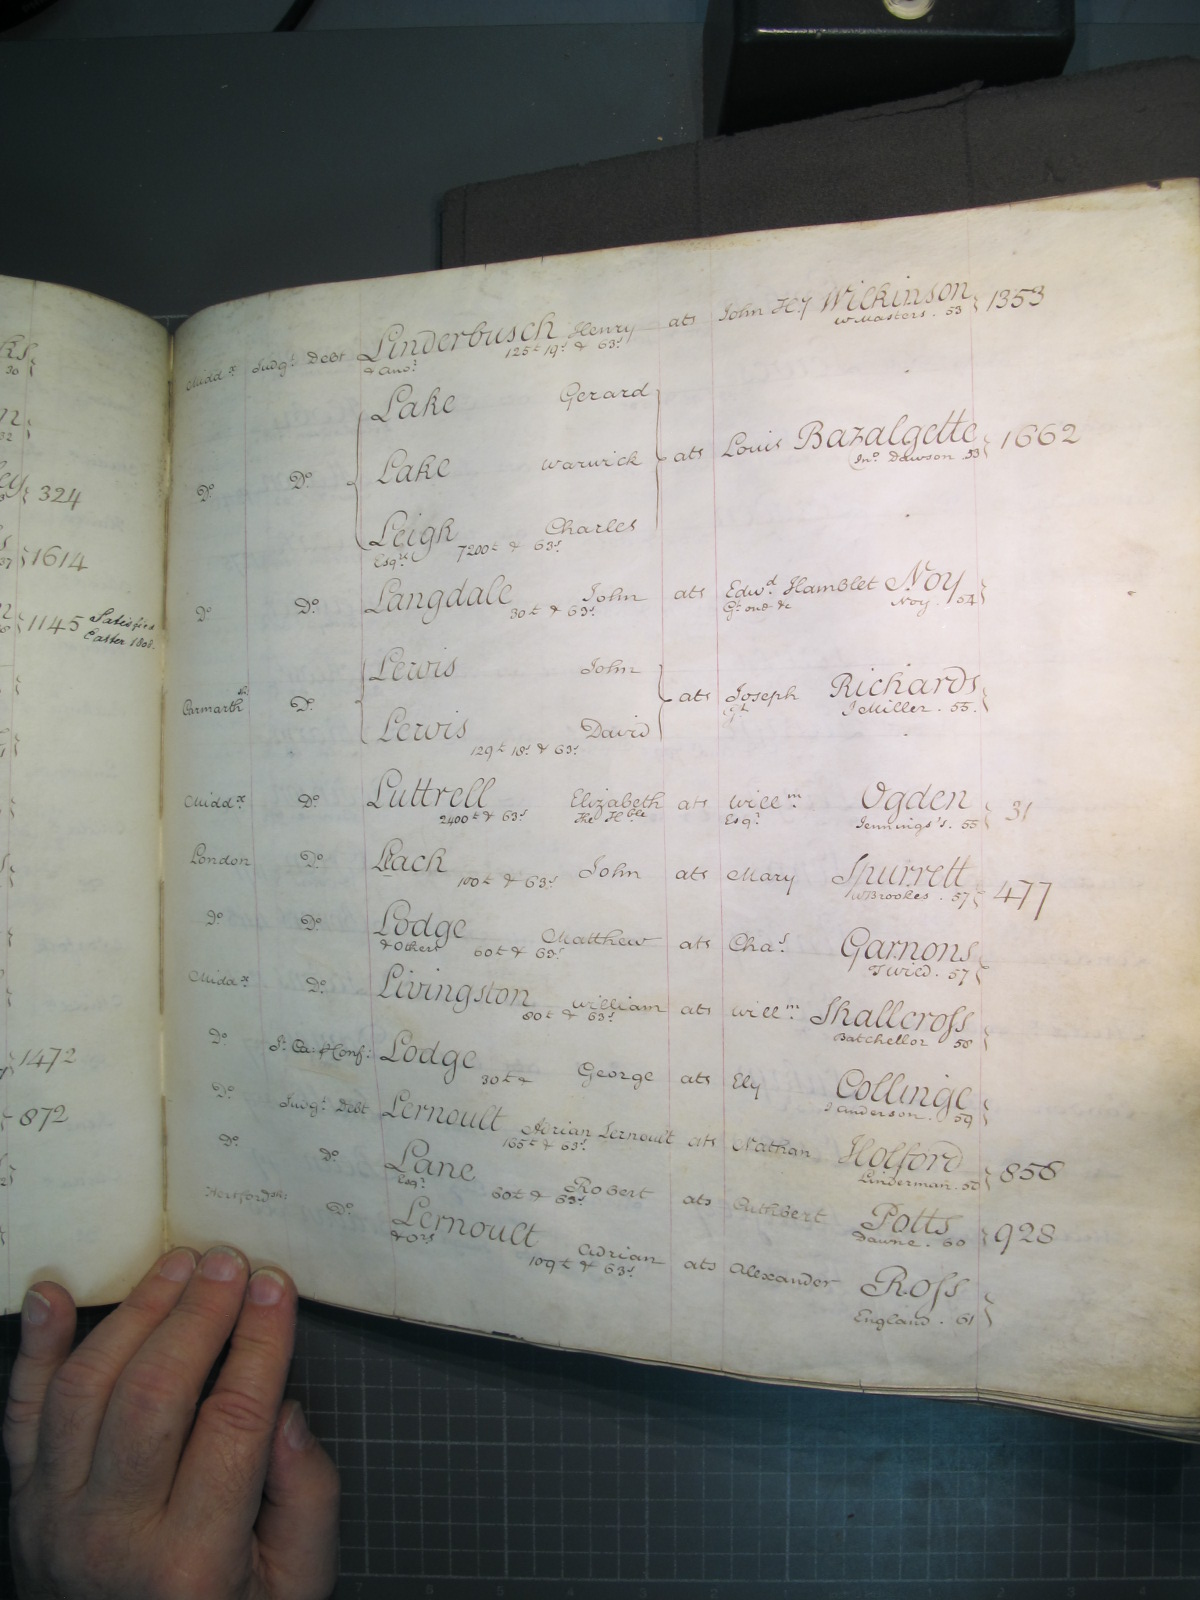 324
1614
1145 Satisfied
Easter 1808.
1472
872
Midd.x Judg.t Debt Linderbusch Henry ats John H.y Wilkinson 1353
& ano.r 125£ 19s & 63s. W Masters . 53
Lake Gerard
D.o D.o Lake Warwick ats Louis Bazalgette 1662
Jn.o Dawson 53
Leigh Charles
Esq.rs 7200£ & 63s.
D.o D.o Langdale John ats Edw.d Hamblet Noy
30£ & 63s. G.t one &c Noy . 54
Lewis John
Carmarth D.o ats Joseph Richards
G.t J Miller . 55.
Lewis David
129£ 18s. & 63s.
Midd.x D.o Luttrell Elizabeth ats Will.m Ogden 31
2400£ & 63s The H.ble Esq.r Jennings's . 55
London D.o Leach John ats Mary Spurrett 477
100£ & 63s W Brookes . 57
D.o D.o Lodge Matthew ats Cha.s Garnons
& Others 60£ & 63s. Twied . 57
Midd.x D.o Livingston William ats Will.m Shallcross
80£ & 63s. Batchellor 58
D.o Lodge George ats Ely Collinge
30£ & J Anderson . 59
D.o Judg.t Debt Lernoult Adrian Lernoult ats Nathan Holford 858
165£ & 63s. Linderman .
D.o D.o Lane Robert ats Cuthbert Potts 928
Esq.r 60£ & 63s. Dawne . 60
Hertfordsh: D.o Lernoult Adrian ats Alexander Ross
& ors 109£ & 63s. England . 61